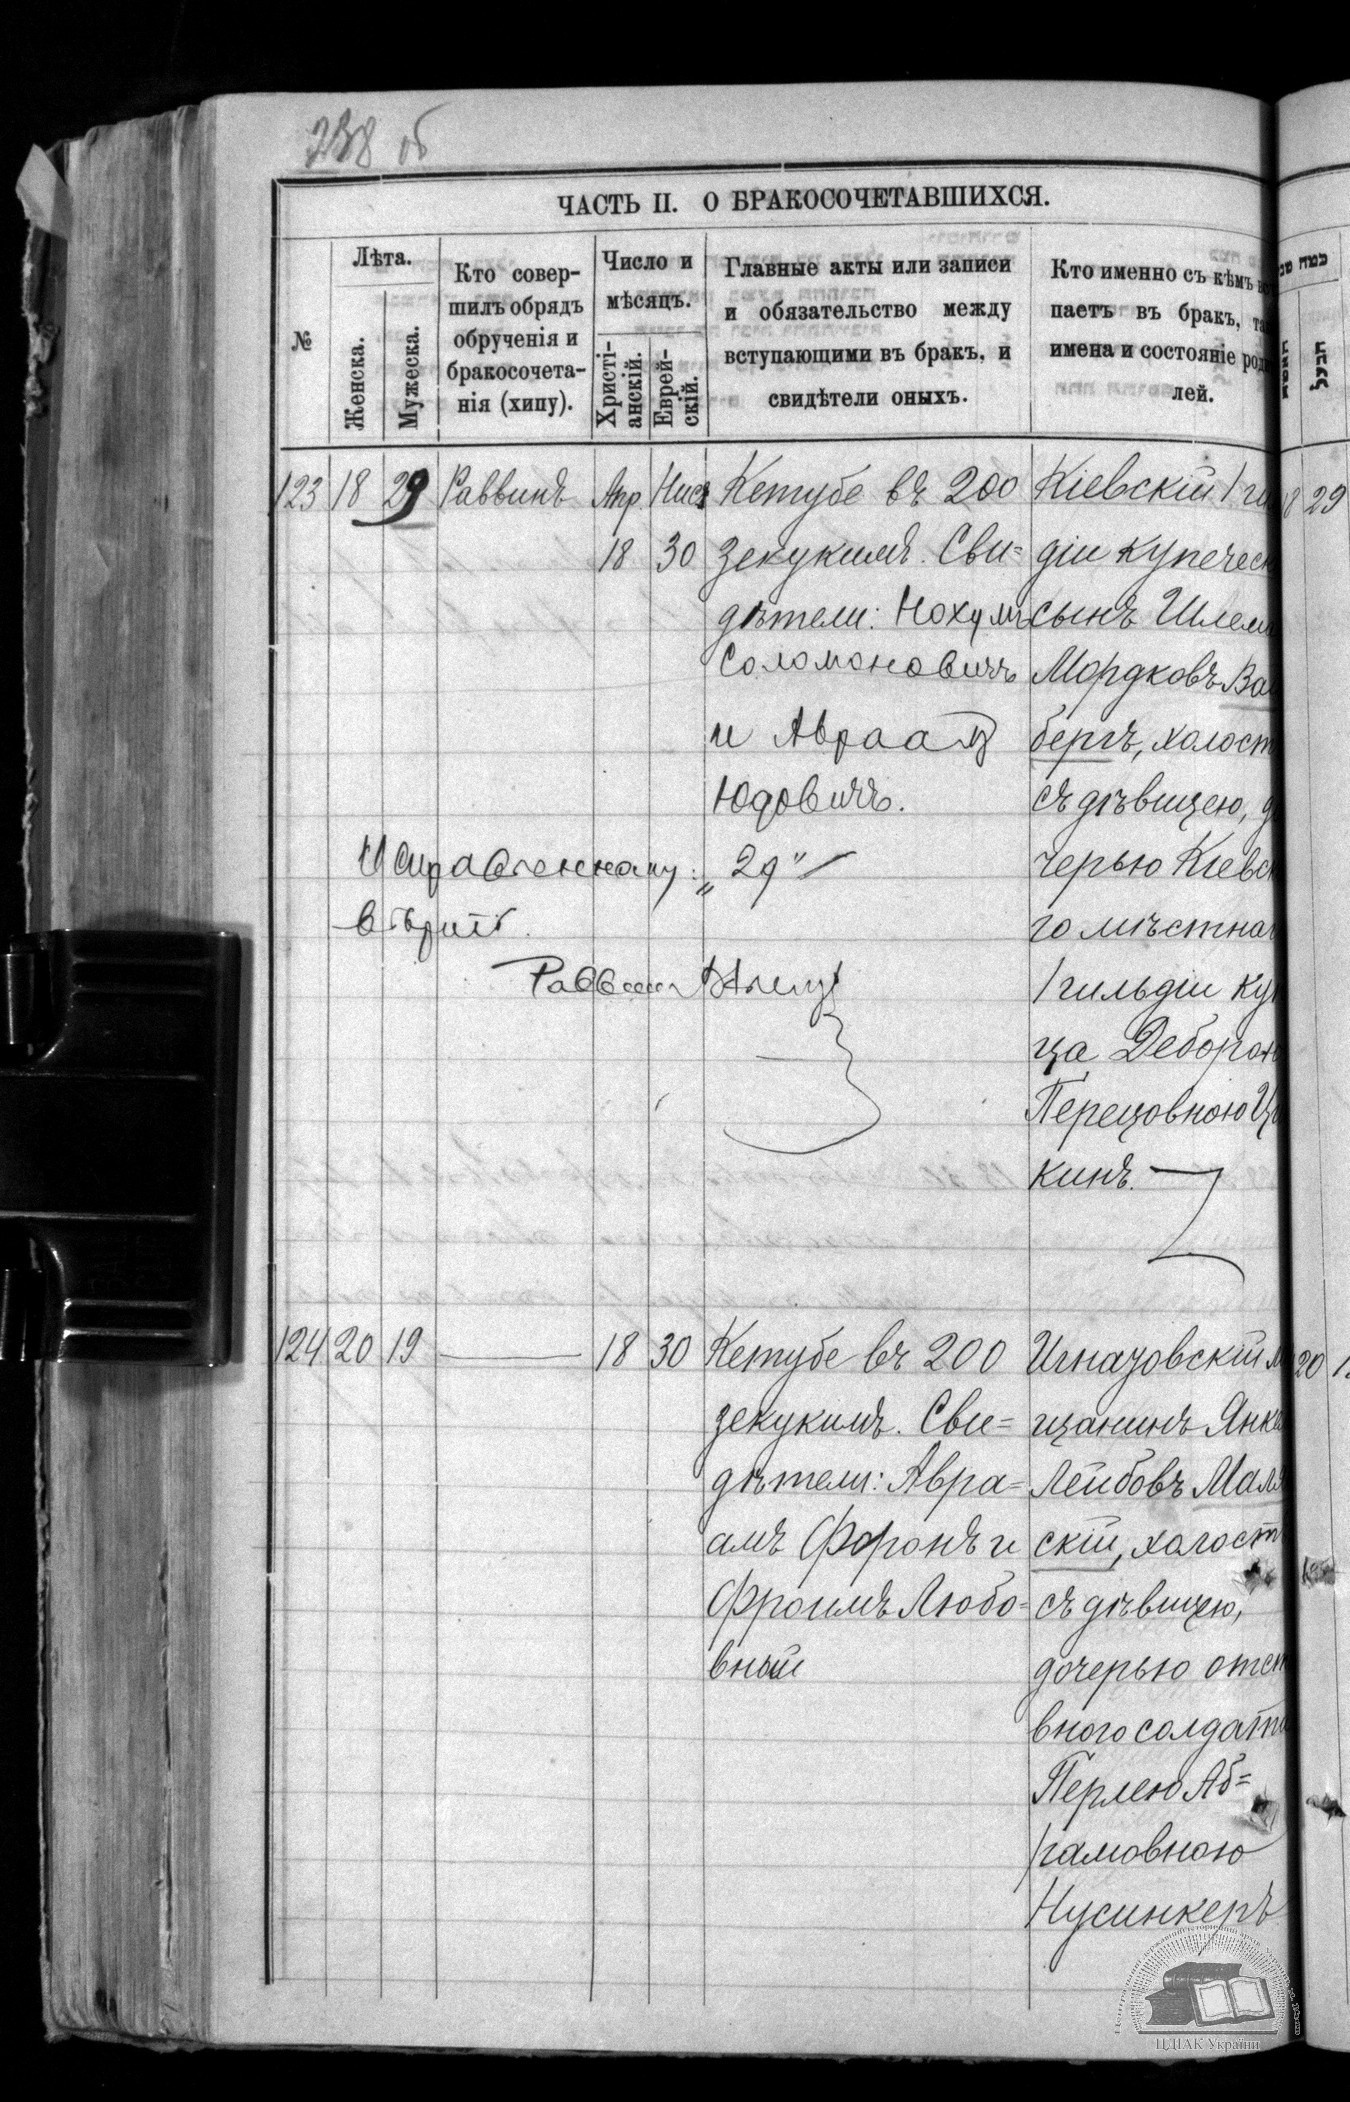 238 об
ЧАСТЬ II. О БРАКОСОЧЕТАВШИХСЯ.
№
Лѣта.
Женска.
Мужеска.
Кто совер-
шилъ обрядъ
обрученія и
бракосочета-
нія (хипу).
Число и
мѣсяцъ.
Христі-
анскій.
Еврей-
скій.
Главные акты или записи
и обязательство между
вступающими въ бракъ, и
свидѣтели оныхъ.
Кто именно съ кѣмъ вс
паетъ въ бракъ, та
имена и состояніе род
лей.
123 18 29 Раввинъ Апр. Нис.
18 30
Кетубе въ 200
зекукимъ. Сви=
дѣтели: Нохумъ
Соломоновичъ
и Авраамъ
Юдовичъ.
Кіевскій 1 ги
діи купеческ
сынъ Шлем
Мордковъ Ва
бергъ, холост
съ дѣвицею, д
черью Кіевск
го мѣстна
1 гильдіи куп
ца Деборою
Перецовною Ц
кинъ.
18 29
Исправленному: „29“
вѣрить.
Раввинъ
124 20 19 18 30
Кетубе въ 200
зекукимъ. Сви=
дѣтели: Авра=
амъ Форонъ и
Фроимъ Любо=
вный
Игнатовскій м
щанинъ Янке
Лейбовъ Маля
скій, холост
съ дѣвицею,
дочерью отст
вного солдата
Перлею Аб=
рамовною
Нусинкеръ
20
ЦДІАК України